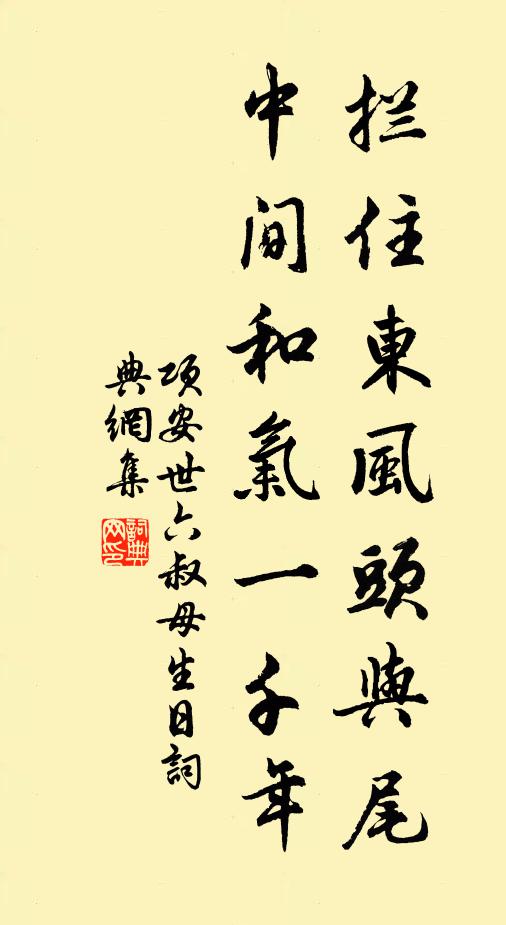 拦住東風頭與尾
中間和氣一千年
項安世六叔母生日詞
典網集
詞典網印